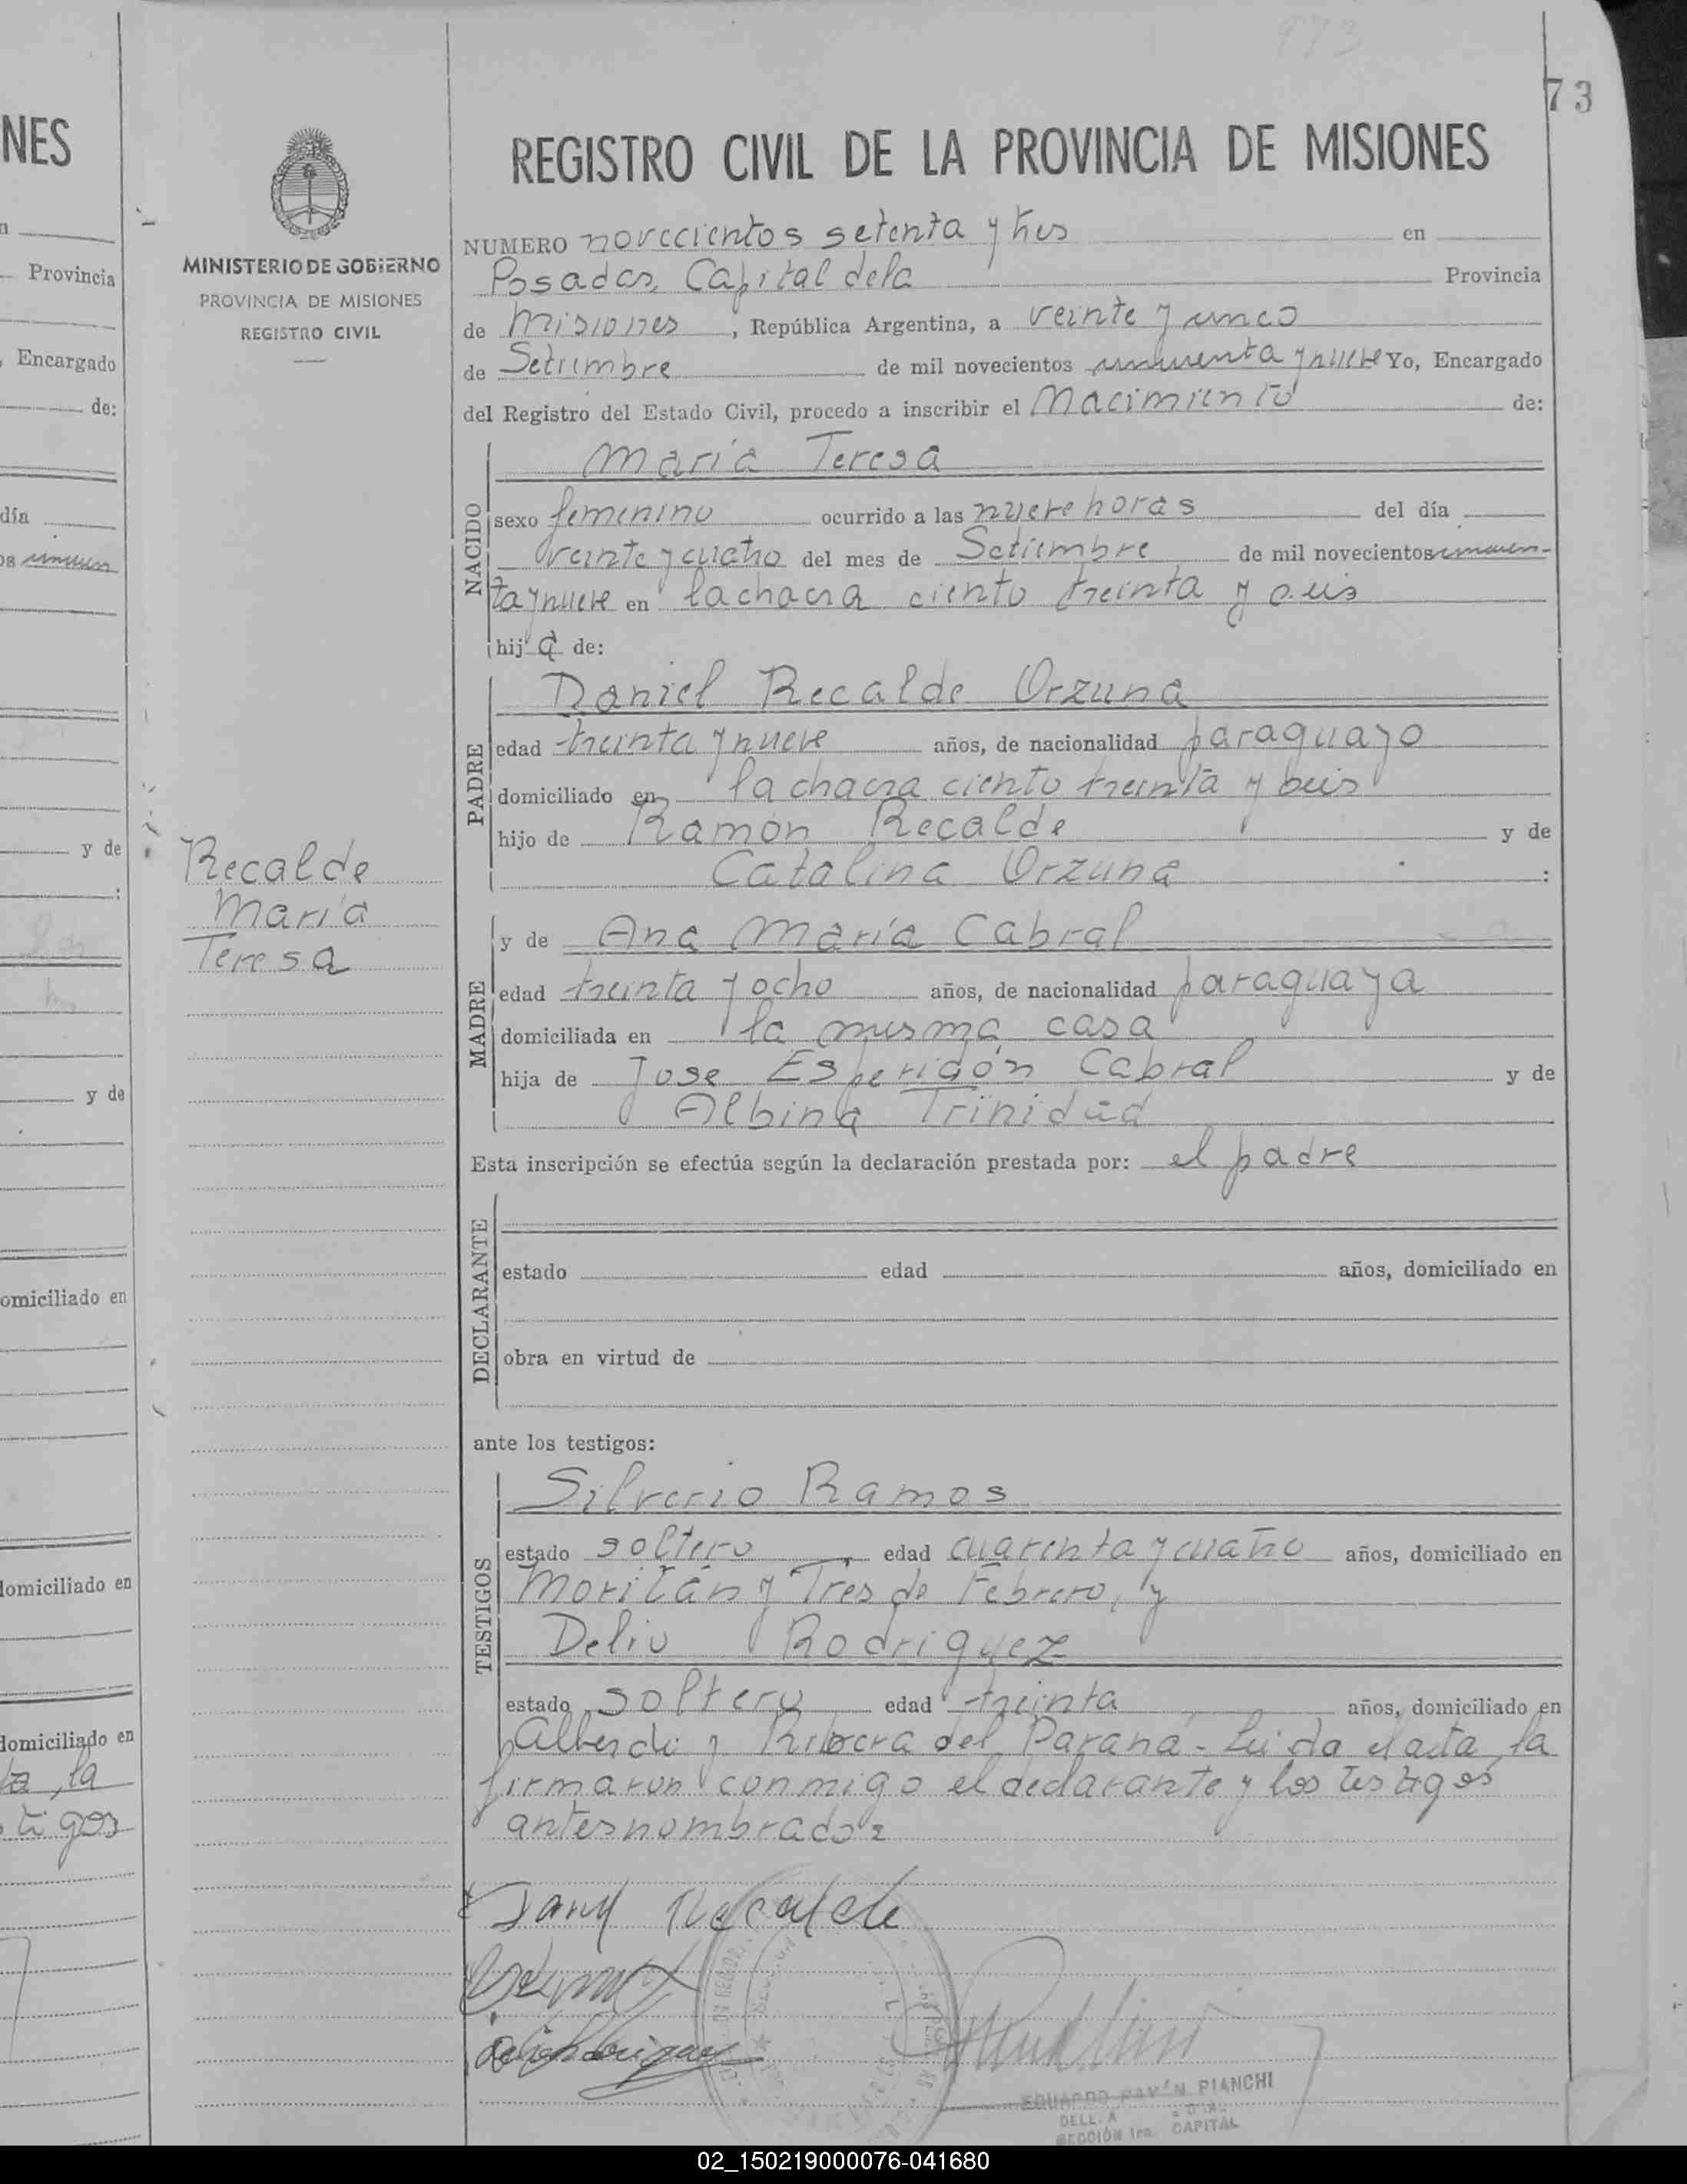 973
73
NES
REGISTRO CIVIL DE LA PROVINCIA DE MISIONES
MINISTERIO DE GOBIERNO
PROVINCIA DE MISIONES
REGISTRO CIVIL
Provincia
, Encargado
de:
día
y de
y de
omiciliado en
domiciliado en
domiciliado en
la
tigos
Recalde
María
Teresa
NUMERO novecientos setenta y tres en
Posadas, Capital de la Provincia
de Misiones, República Argentina, a veinte y cinco
de Setiembre de mil novecientos cincuenta y nueve Yo, Encargado
del Registro del Estado Civil, procedo a inscribir el Nacimiento de:
NACIDO
María Teresa
sexo femenino ocurrido a las nueve horas del día
veinte y cuatro del mes de Setiembre de mil novecientos cincuen-
ta y nueve en la chacra ciento treinta y seis
hija de:
PADRE
Daniel Recalde Orzuna
edad treinta y nueve años, de nacionalidad paraguayo
domiciliado en la chacra ciento treinta y seis
hijo de Ramón Recalde y de
Catalina Orzuna :
MADRE
y de Ana María Cabral
edad treinta y ocho años, de nacionalidad paraguaya
domiciliada en la misma casa
hija de Jose Esperidón Cabral y de
Albina Trinidad
Esta inscripción se efectúa según la declaración prestada por: el padre
DECLARANTE
estado edad años, domiciliado en
obra en virtud de
ante los testigos:
TESTIGOS
Silverio Ramos
estado soltero, edad cuarenta y cuatro años, domiciliado en
Moritán y Tres de Febrero, y
Delio Rodriguez
estado soltero edad treinta años, domiciliado en
Alberdi y Ribera del Paraná - Leída el acta, la
firmaron conmigo el declarante y los testigos
antes nombrados
Daniel Recalde
EDUARDO RAMÓN BIANCHI
SECCIÓN 1ra. CAPITAL
02_150219000076-041680